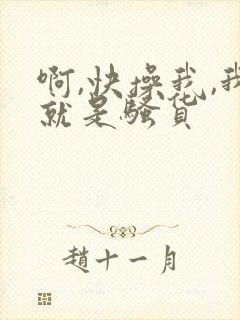 啊,快操我,我
就是骚货
趙十一月